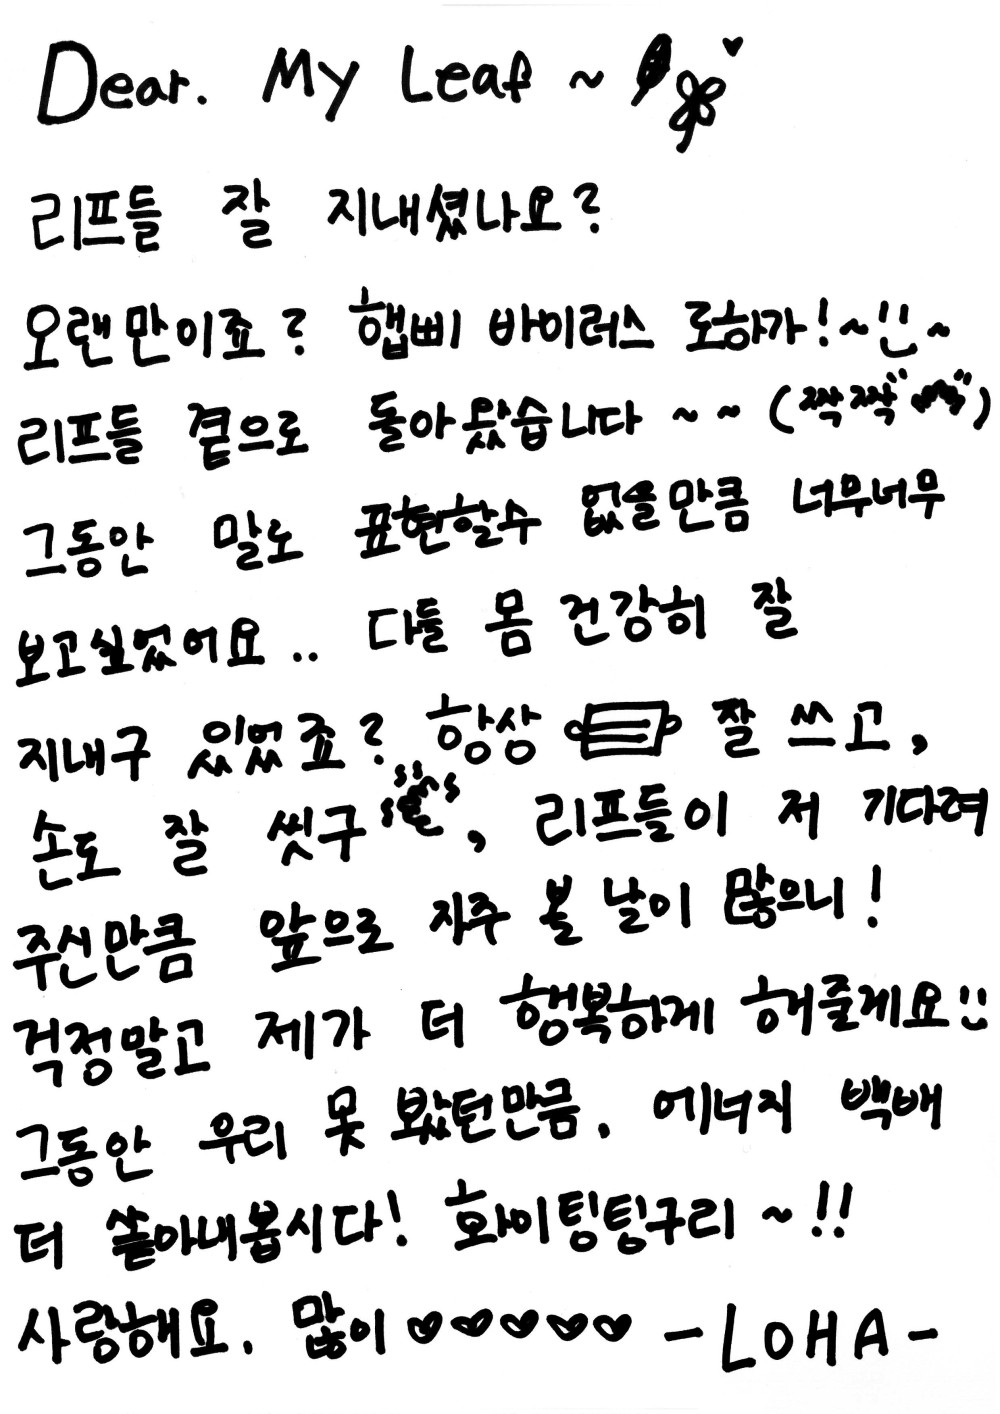 Dear. My Leaf ~
리프들 잘 지내셨나요?
오랜만이죠? 햅삐 바이러스 로하가!~!!~
리프들 곁으로 돌아왔습니다 ~ ~ (짝짝)
그동안 말로 표현할수 없을만큼 너무너무
보고싶었어요.. 다들 몸 건강히 잘
지내구 있었죠? 항상 잘 쓰고,
손도 잘 씻구, 리프들이 저 기다려
주신만큼 앞으로 자주 볼 날이 많으니!
걱정말고 제가 더 행복하게 해줄게요!!
그동안 우리 못 봤던만큼. 에너지 백배
더 쏟아내봅시다! 화이팅팅구리~!!
사랑해요. 많이 ♡♡♡♡♡ -LOHA-